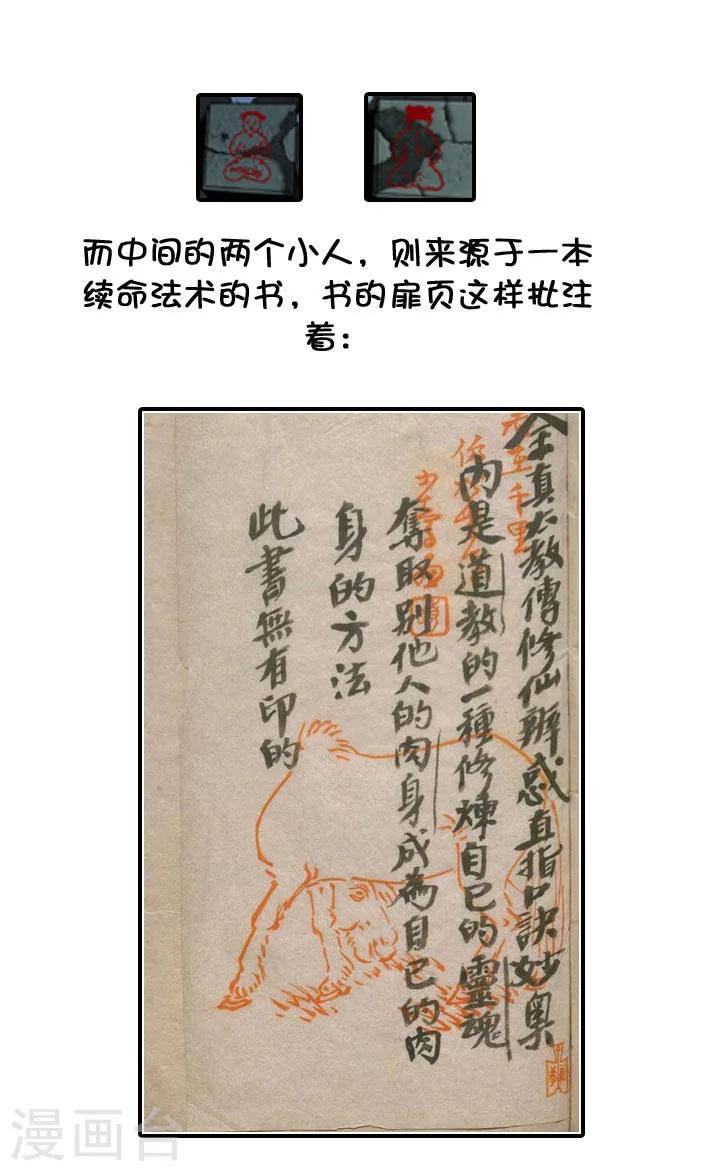 而中间的两个小人，则来源于一本
续命法术的书，书的扉页这样批注
着：
全真大教傳修仙辨惑直指口訣妙奧
内是道教的一種修煉自己的靈魂
奪取別他人的肉身成為自己的肉
身的方法
此書無有印的
千里
漫画台